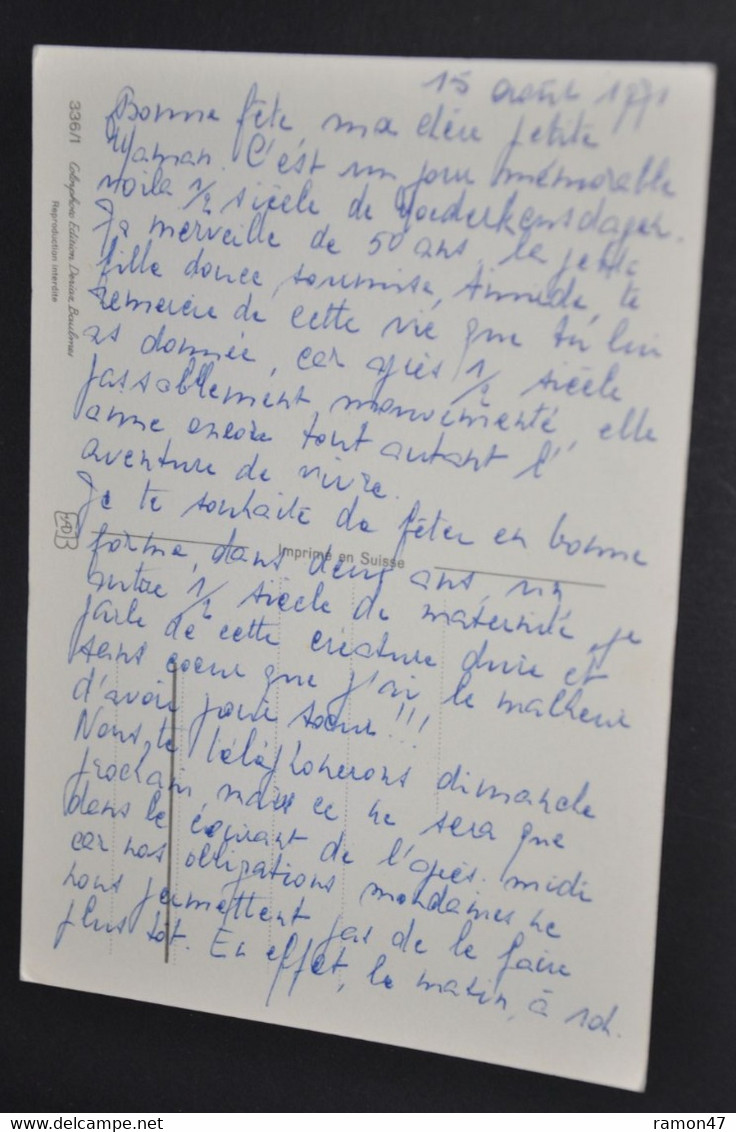 15 août 1971
Bonne fête, ma chère petite
Maman. C'est un jour mémorable
voilà 1/2 siècle de Moederkensdagen.
Ta merveille de 50 ans, la petite
fille douce, soumise, timide, te
remercie de cette vie que tu lui
as donnée, car après 1/2 siècle
passablement mouvementé, elle
aime encore tout autant l'
aventure de vivre.
Je te souhaite de fêter en bonne
forme, dans deux ans, un
autre 1/2 siècle de maternité, je
parle de cette créature dure et
sans coeur que j'ai le malheur
d'avoir pour soeur!!!
Nous te téléphonerons dimanche
prochain, mais ce ne sera que
dans le courant de l'après-midi
car nos obligations mondaines ne
nous permettent pas de le faire
plus tôt. En effet, le matin, à 10h.
Imprimé en Suisse
336/1 Colorphoto Edition Deriaz, Baulmes
Reproduction interdite
ramon47